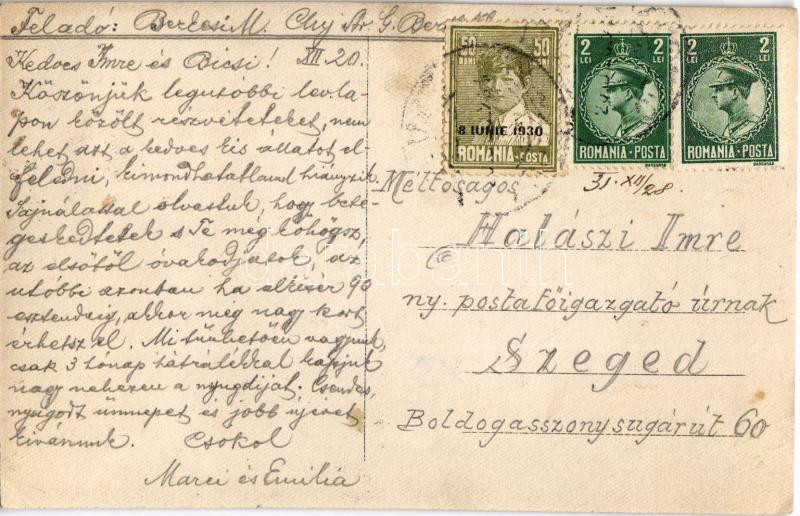 Feladó: Berkesi M. Cluj Str. G.
Kedves Imre és Bicsi! XII. 20.
Köszönjük legutóbbi lev.la-
pon közölt részvéteteket, nem
lehet azt a kedves kis állatot el-
feledni, kimondhatatlanul hiányzik.
Sajnálattal olvastuk, hogy bete-
geskedtetek s Te még köhögsz,
az elsőtől óvakodjatok, az
utóbbi azonban ha eltízer 90
esztendeig, akkor még nagy kort
érhetsz el. Mi tűrhetően vagyunk,
csak 3 hónap hátrálékkal kapjuk
nagy nehezen a nyugdíjat. Csendes,
nyugodt ünnepet és jobb újévet
kívánunk. Csokol
Marci és Emilia
50 BANI 50 BANI
8 IUNIE 1930
ROMANIA-POSTA
2 LEI 2 LEI
ROMANIA-POSTA
2 LEI 2 LEI
ROMANIA-POSTA
31. XII/28.
Méltóságos
Halászi Imre
ny. postafőigazgató úrnak
Szeged
Boldogasszony sugárút 60
darabanth